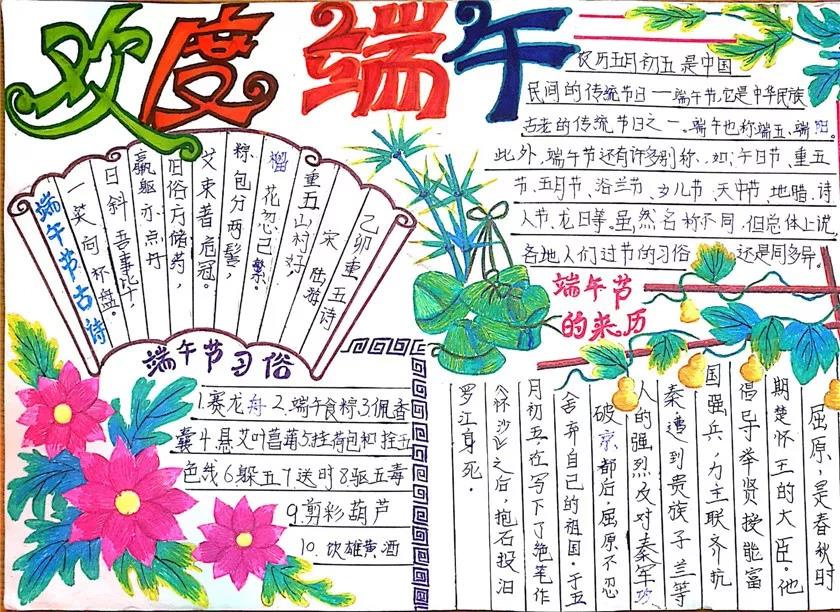 欢度端午
农历五月初五是中国
民间的传统节日——端午节,它是中华民族
古老的传统节日之一。端午也称端五,端阳.
此外,端午节还有许多别称,如:午日节、重五
节、五月节、浴兰节、女儿节、天中节、地腊、诗
人节、龙日等。虽然名称不同,但总体上说
各地人们过节的习俗 还是同多异。
端午节古诗
乙卯重五诗
宋 陆游
重五山村好,
榴花忽已繁。
粽包分两髻,
艾束著危冠。
旧俗方储药,
羸躯亦点丹
日斜吾事毕,
一笑向杯盘。
端午节习俗
1.赛龙舟 2.端午食粽 3.佩香
囊 4.悬艾叶菖蒲 5.挂荷包和拴五
色线 6.躲五 7.送时 8.驱五毒
9.剪彩葫芦
10.饮雄黄酒
端午节
的来历
屈原,是春秋时
期楚怀王的大臣。他
倡导举贤授能富
国强兵,力主联齐抗
秦,遭到贵族子兰等
人的强烈反对秦军攻
破京都后,屈原不忍
舍弃自己的祖国,于五
月初五,在写下了绝笔作
《怀沙》之后,抱石投汨
罗江身死。